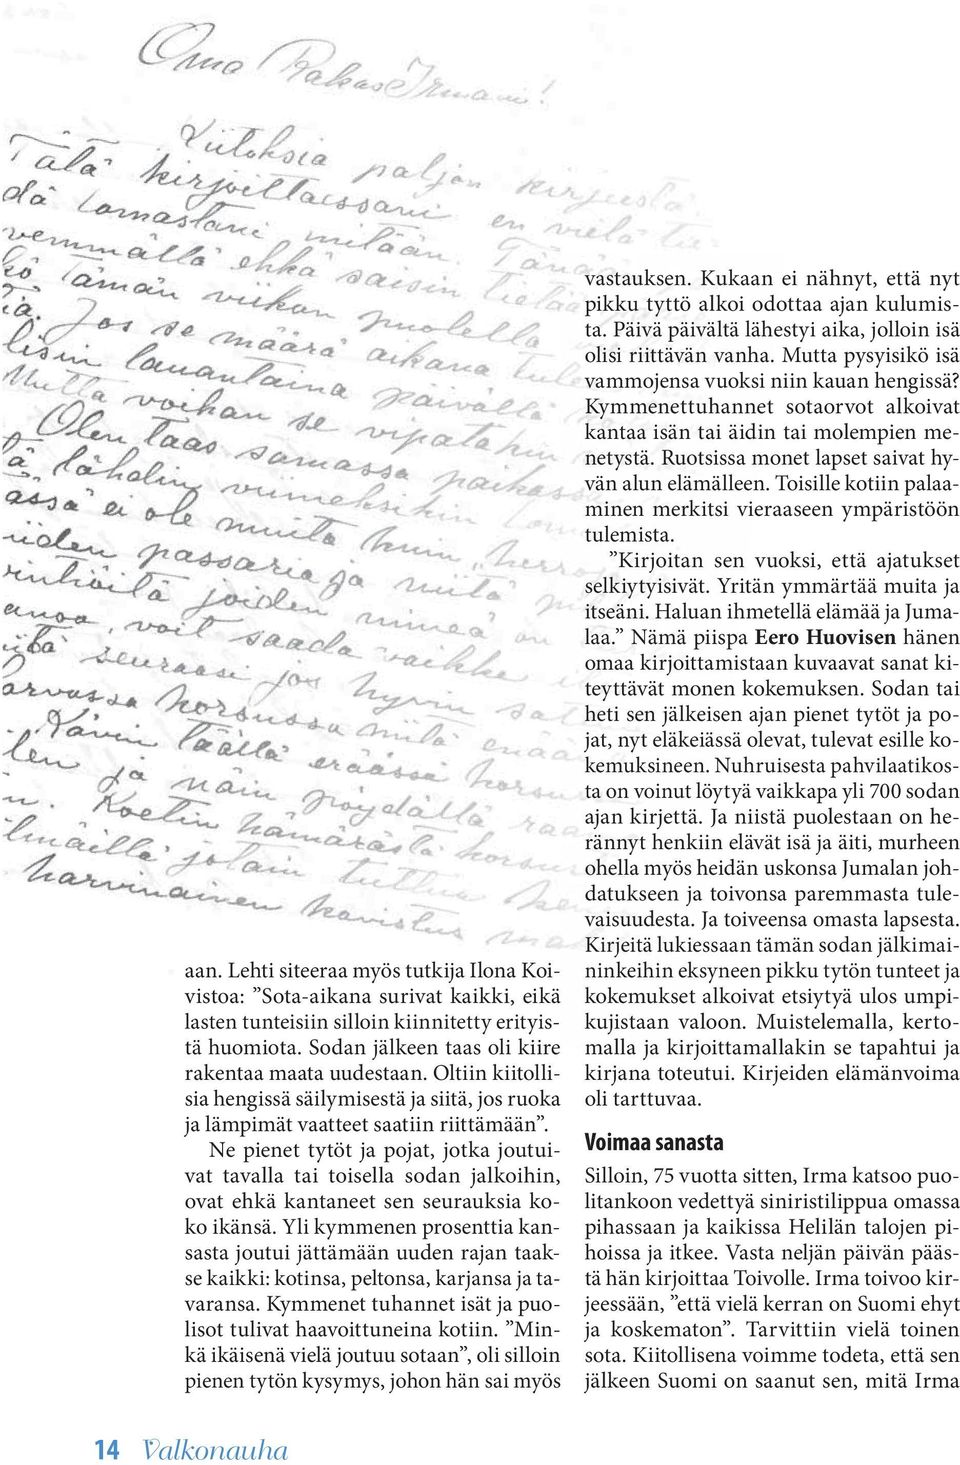 Oma Rakas Irmani!
Kiitoksia paljon kirjeestä.
Tätä kirjoittaessani en vielä tie-
dä lomastani mitään. Tänään
vemmällä ehkä saisin tietää
kö tämän viikon puolella
tiä. Jos se määrä aikana tule
lisin lauantaina päivällä
Mutta voihan se vipatahin
Olen taas samassa paikassa
ä lähdin viimeksikin lom
ässä ei ole muita kuin "herro
iiden passaria ja niitä
rintiöitä joiden nimeä on
anoa, voit saada vaikka
itä seuraasi jos hyvin sat
arvassa korsussa mitä enää
Kävin täällä eräässä korsu
len ja näin pöydällä raa
n. Koetin hämärästä korsu
ilmäillä jotain tuttua
harvinainen kavistus
aan. Lehti siteeraa myös tutkija Ilona Koi-
vistoa: ”Sota-aikana surivat kaikki, eikä
lasten tunteisiin silloin kiinnitetty erityis-
tä huomiota. Sodan jälkeen taas oli kiire
rakentaa maata uudestaan. Oltiin kiitolli-
sia hengissä säilymisestä ja siitä, jos ruoka
ja lämpimät vaatteet saatiin riittämään”.
Ne pienet tytöt ja pojat, jotka joutui-
vat tavalla tai toisella sodan jalkoihin,
ovat ehkä kantaneet sen seurauksia ko-
ko ikänsä. Yli kymmenen prosenttia kan-
sasta joutui jättämään uuden rajan taak-
se kaikki: kotinsa, peltonsa, karjansa ja ta-
varansa. Kymmenet tuhannet isät ja puo-
lisot tulivat haavoittuneina kotiin. ”Min-
kä ikäisenä vielä joutuu sotaan”, oli silloin
pienen tytön kysymys, johon hän sai myös
vastauksen. Kukaan ei nähnyt, että nyt
pikku tyttö alkoi odottaa ajan kulumis-
ta. Päivä päivältä lähestyi aika, jolloin isä
olisi riittävän vanha. Mutta pysyisikö isä
vammojensa vuoksi niin kauan hengissä?
Kymmenettuhannet sotaorvot alkoivat
kantaa isän tai äidin tai molempien me-
netystä. Ruotsissa monet lapset saivat hy-
vän alun elämälleen. Toisille kotiin palaa-
minen merkitsi vieraaseen ympäristöön
tulemista.
”Kirjoitan sen vuoksi, että ajatukset
selkiytyisivät. Yritän ymmärtää muita ja
itseäni. Haluan ihmetellä elämää ja Juma-
laa.” Nämä piispa Eero Huovisen hänen
omaa kirjoittamistaan kuvaavat sanat ki-
teyttävät monen kokemuksen. Sodan tai
heti sen jälkeisen ajan pienet tytöt ja po-
jat, nyt eläkeiässä olevat, tulevat esille ko-
kemuksineen. Nuhruisesta pahvilaatikos-
ta on voinut löytyä vaikkapa yli 700 sodan
ajan kirjettä. Ja niistä puolestaan on he-
rännyt henkiin elävät isä ja äiti, murheen
ohella myös heidän uskonsa Jumalan joh-
datukseen ja toivonsa paremmasta tule-
vaisuudesta. Ja toiveensa omasta lapsesta.
Kirjeitä lukiessaan tämän sodan jälkimai-
ninkeihin eksyneen pikku tytön tunteet ja
kokemukset alkoivat etsiytyä ulos umpi-
kujistaan valoon. Muistelemalla, kerto-
malla ja kirjoittamallakin se tapahtui ja
kirjana toteutui. Kirjeiden elämänvoima
oli tarttuvaa.
Voimaa sanasta
Silloin, 75 vuotta sitten, Irma katsoo puo-
litankoon vedettyä siniristilippua omassa
pihassaan ja kaikissa Helilän talojen pi-
hoissa ja itkee. Vasta neljän päivän pääs-
tä hän kirjoittaa Toivolle. Irma toivoo kir-
jeessään, ”että vielä kerran on Suomi ehyt
ja koskematon”. Tarvittiin vielä toinen
sota. Kiitollisena voimme todeta, että sen
jälkeen Suomi on saanut sen, mitä Irma
14 Valkonauha